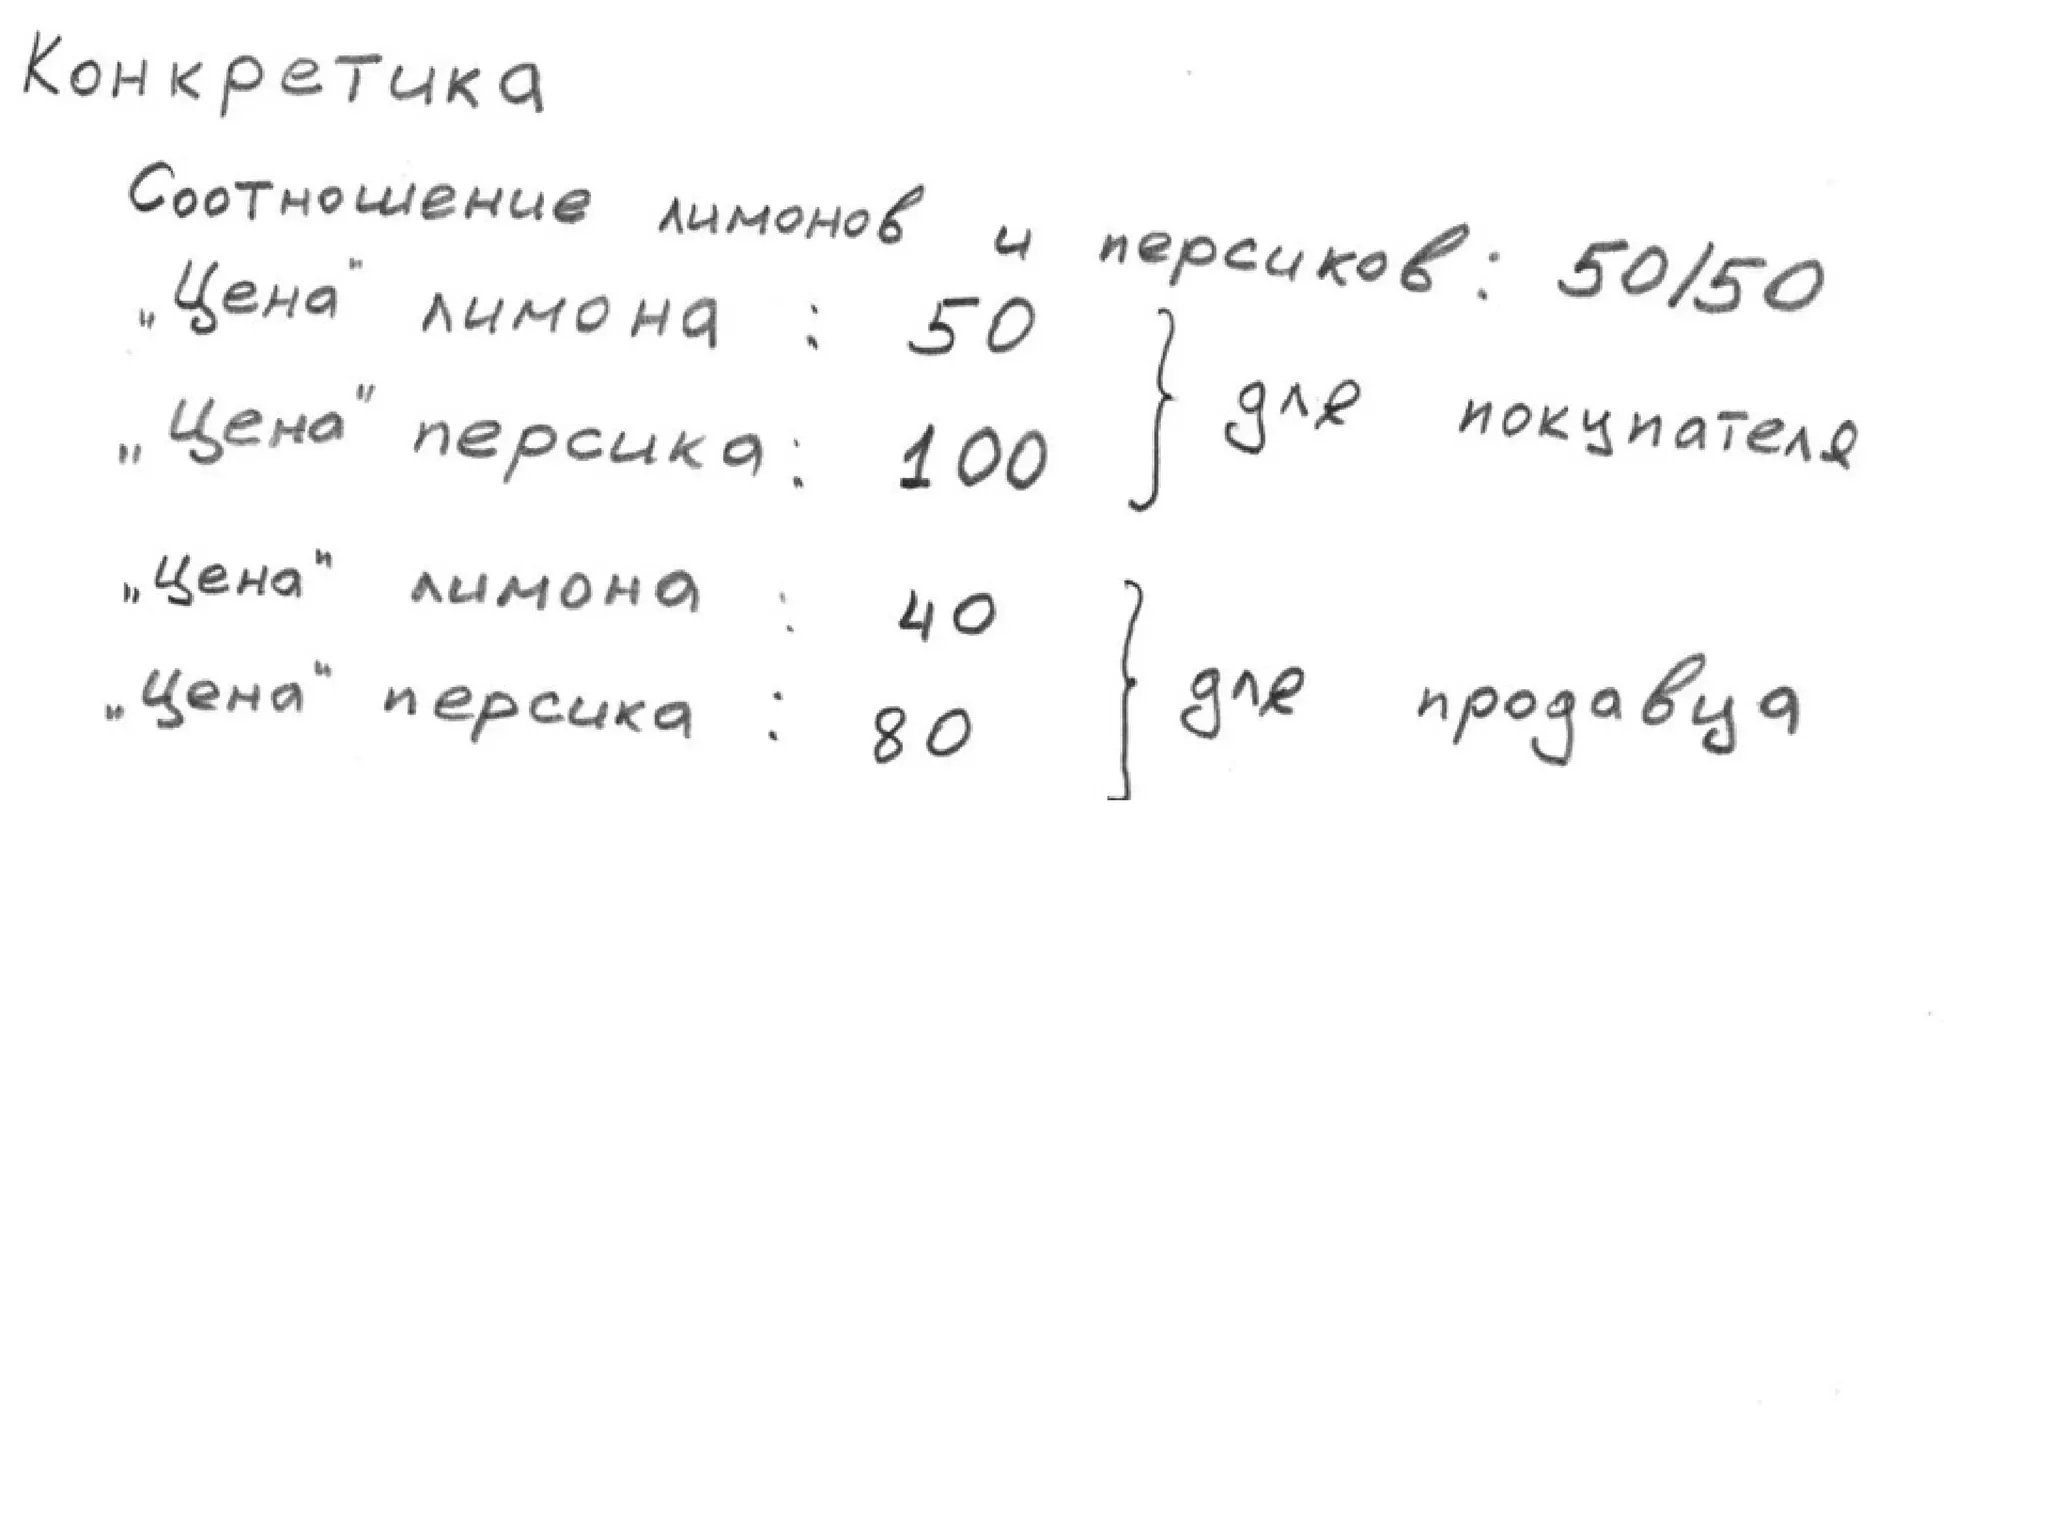 Конкретика
Соотношение лимонов и персиков: 50/50
„Цена" лимона : 50
„Цена" персика: 100
для покупателя
„Цена" лимона : 40
„Цена" персика : 80
для продавца